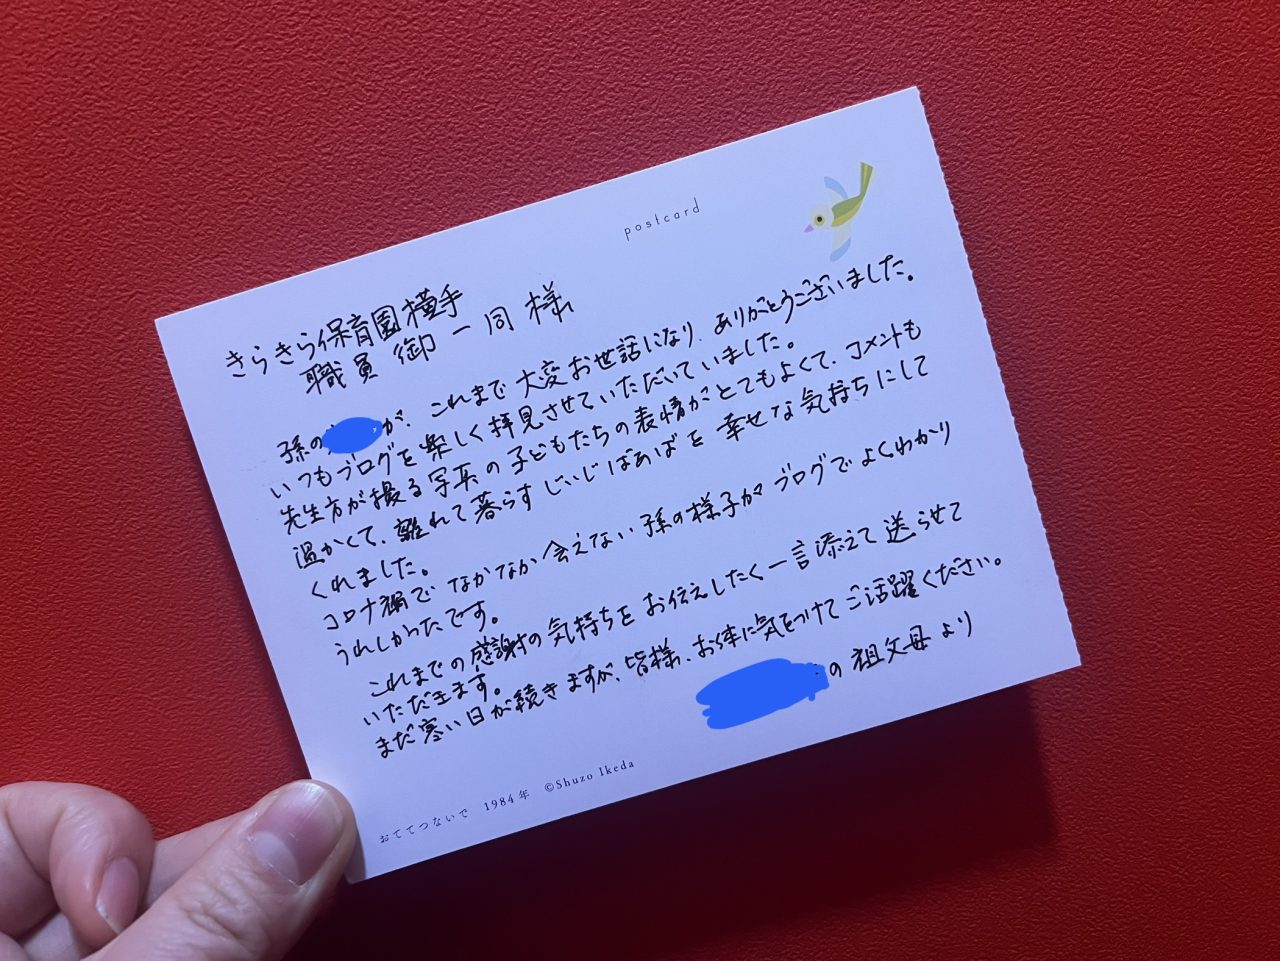 postcard
きらきら保育園横手
職員御一同様
孫の が、これまで大変お世話になり、ありがとうございました。
いつもブログを楽しく拝見させていただいていました。
先生方が撮る写真の子どもたちの表情がとてもよくて、コメントも
温かくて、離れて暮らすじいじばあばを幸せな気持ちにして
くれました。
コロナ禍でなかなか会えない孫の様子がブログでよくわかり
うれしかったです。
これまでの感謝の気持ちをお伝えしたく一言添えて送らせて
いただきます。
まだ寒い日が続きますが、皆様、お体に気をつけてご活躍ください。
の祖父母より
おててつないで 1984年 ©Shuzo Ikeda